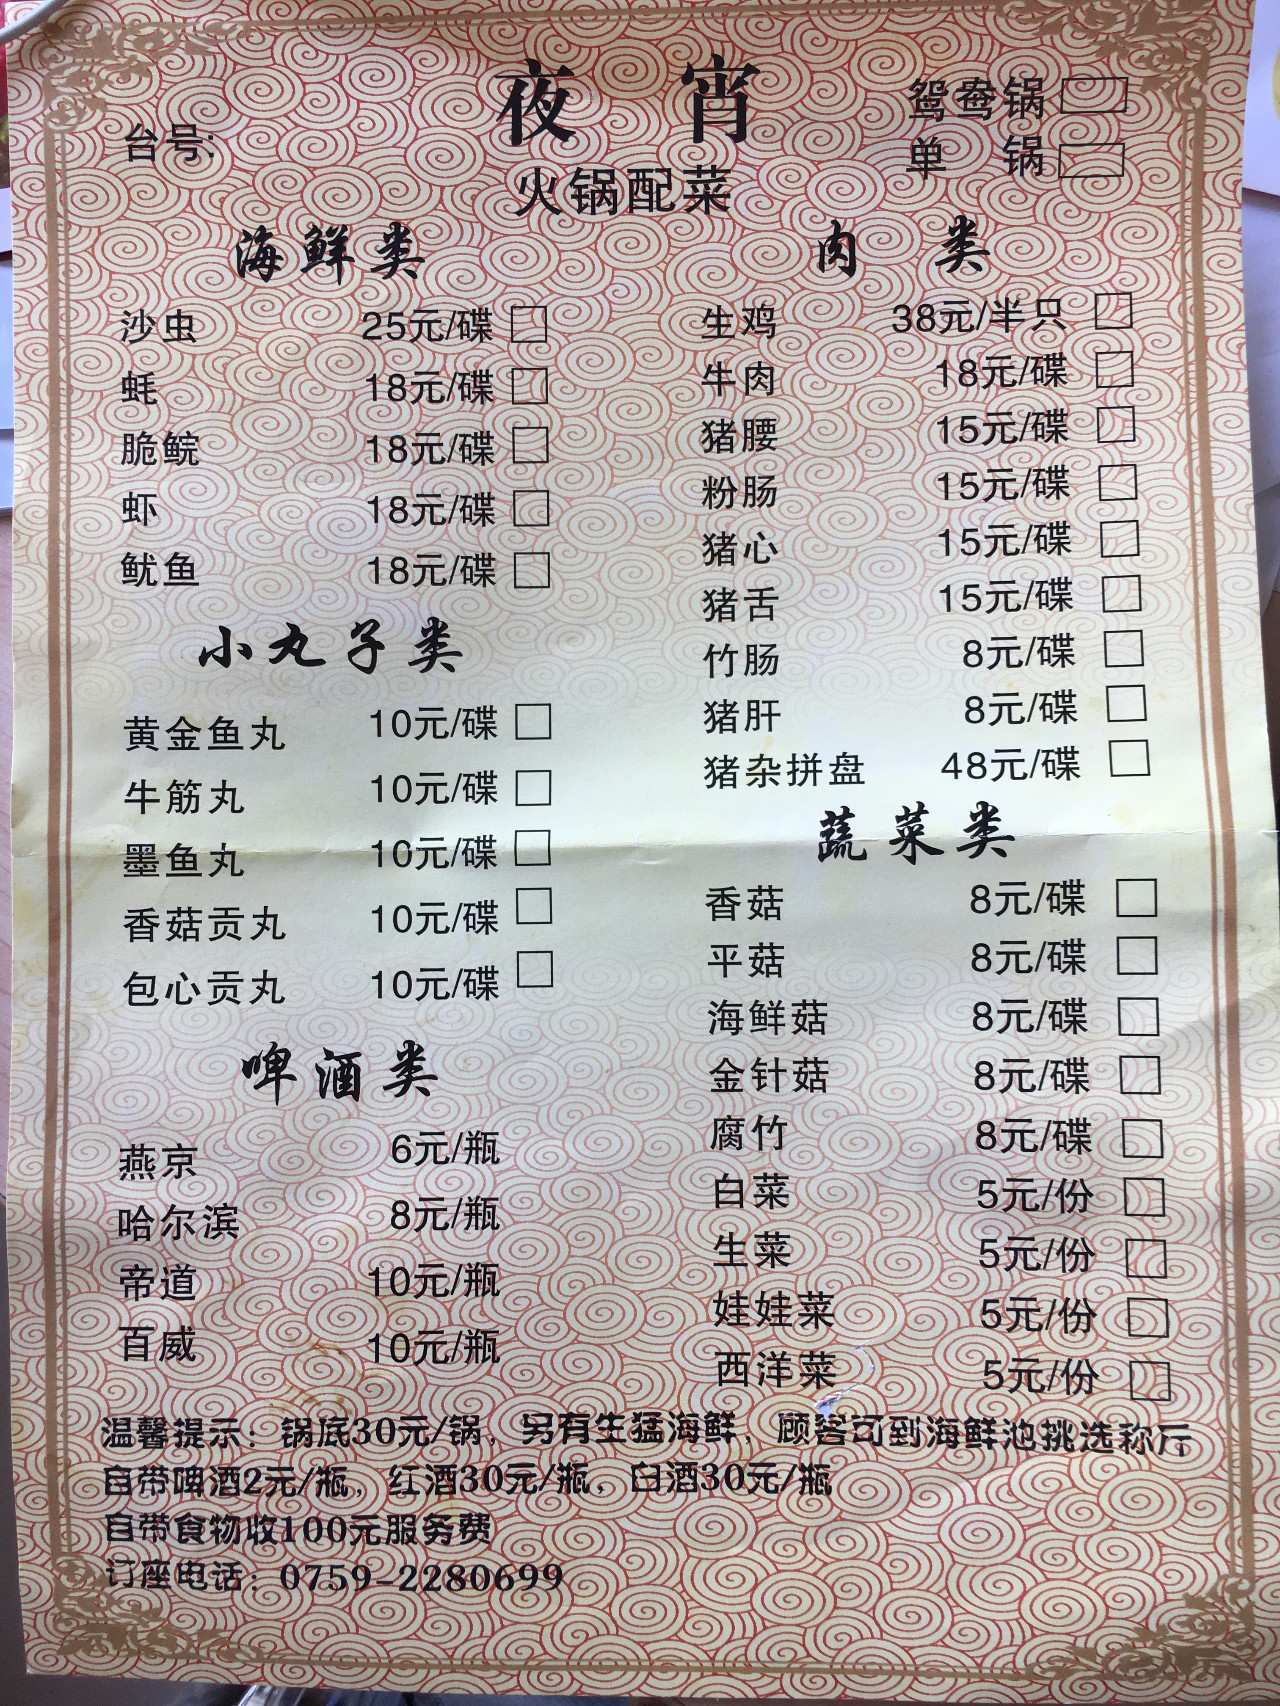 夜 宵
台号:
鸳鸯锅
单 锅
火锅配菜
海鲜类
沙虫 25元/碟
蚝 18元/碟
脆鲩 18元/碟
虾 18元/碟
鱿鱼 18元/碟
小丸子类
黄金鱼丸 10元/碟
牛筋丸 10元/碟
墨鱼丸 10元/碟
香菇贡丸 10元/碟
包心贡丸 10元/碟
啤酒类
燕京 6元/瓶
哈尔滨 8元/瓶
帝道 10元/瓶
百威 10元/瓶
肉 类
生鸡 38元/半只
牛肉 18元/碟
猪腰 15元/碟
粉肠 15元/碟
猪心 15元/碟
猪舌 15元/碟
竹肠 8元/碟
猪肝 8元/碟
猪杂拼盘 48元/碟
蔬菜类
香菇 8元/碟
平菇 8元/碟
海鲜菇 8元/碟
金针菇 8元/碟
腐竹 8元/碟
白菜 5元/份
生菜 5元/份
娃娃菜 5元/份
西洋菜 5元/份
温馨提示：锅底30元/锅，另有生猛海鲜，顾客可到海鲜池挑选称斤
自带啤酒2元/瓶，红酒30元/瓶，白酒30元/瓶
自带食物收100元服务费
订座电话：0759-2280699